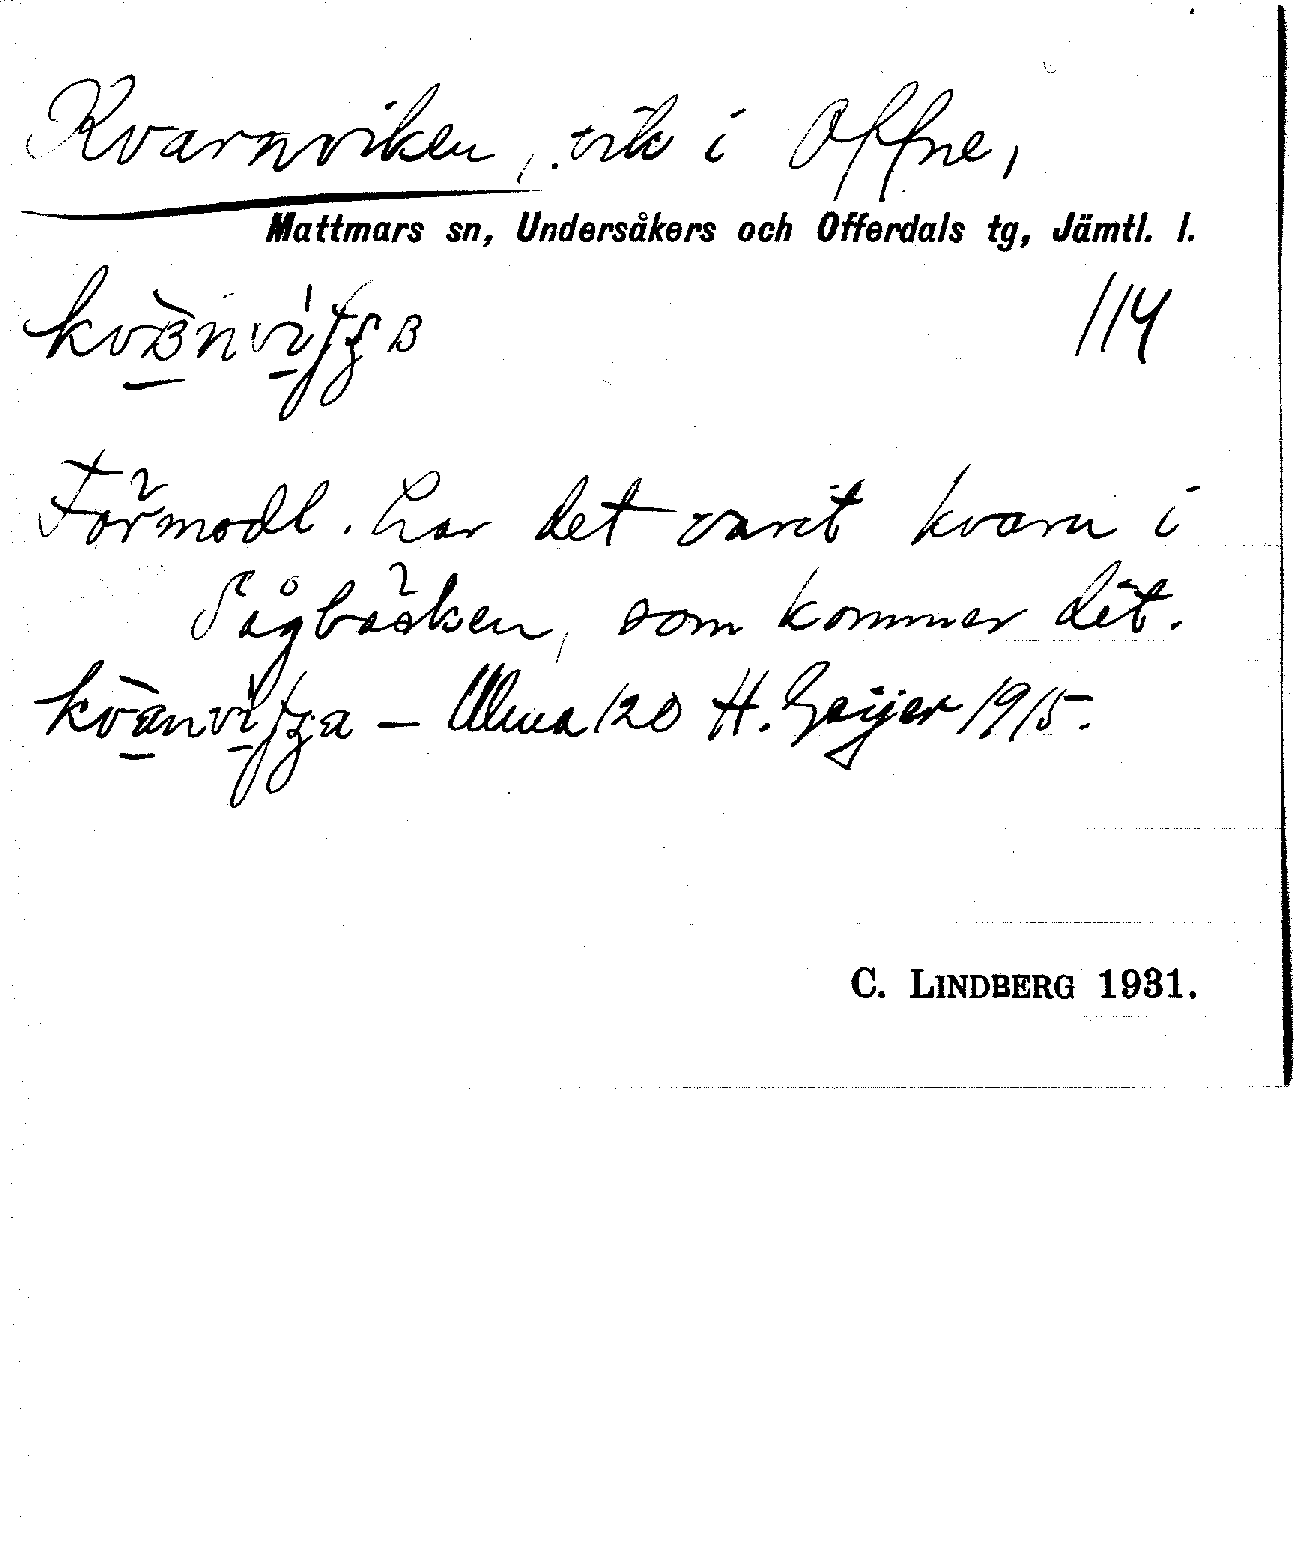 Kvarnviken, vik i Offne,
Mattmars sn, Undersåkers och Offerdals tg, Jämtl. l.
114
Förmodl. har det varit kvarn i
Sågbäcken, som kommer dit.
— Ulma 120 H. Geijer 1915.
C. LINDBERG 1931.